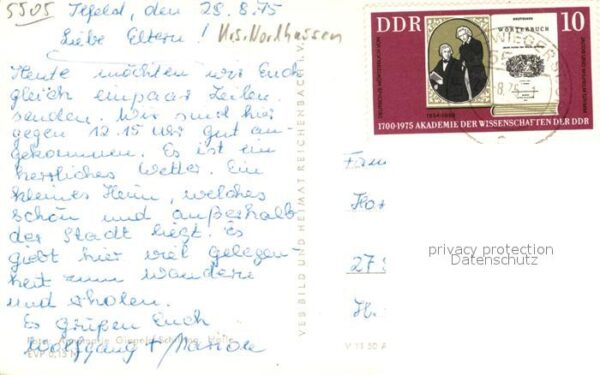 5505 Ilfeld, den 28.8.75
Liebe Eltern! Krs. Nordhausen
Heute möchten wir Euch
gleich ein paar Zeilen
senden. Wir sind hier
gegen 12.15 Uhr gut an-
gekommen. Es ist ein
herrliches Wetter. Ein
kleines Heim, welches
schön und außerhalb
der Stadt liegt. Es
giebt hier viel gelegen-
heit zum wandern
und erholen.
Es Grüßen Euch
Wolfgang + Marion
EVP 0,15 M
VEB BILD UND HEIMAT REICHENBACH I. V.
V 11 50 A
DDR
10
DEUTSCHES
WÖRTERBUCH
1700-1975 AKADEMIE DER WISSENSCHAFTEN DER DDR
Fam
27
privacy protection
Datenschutz